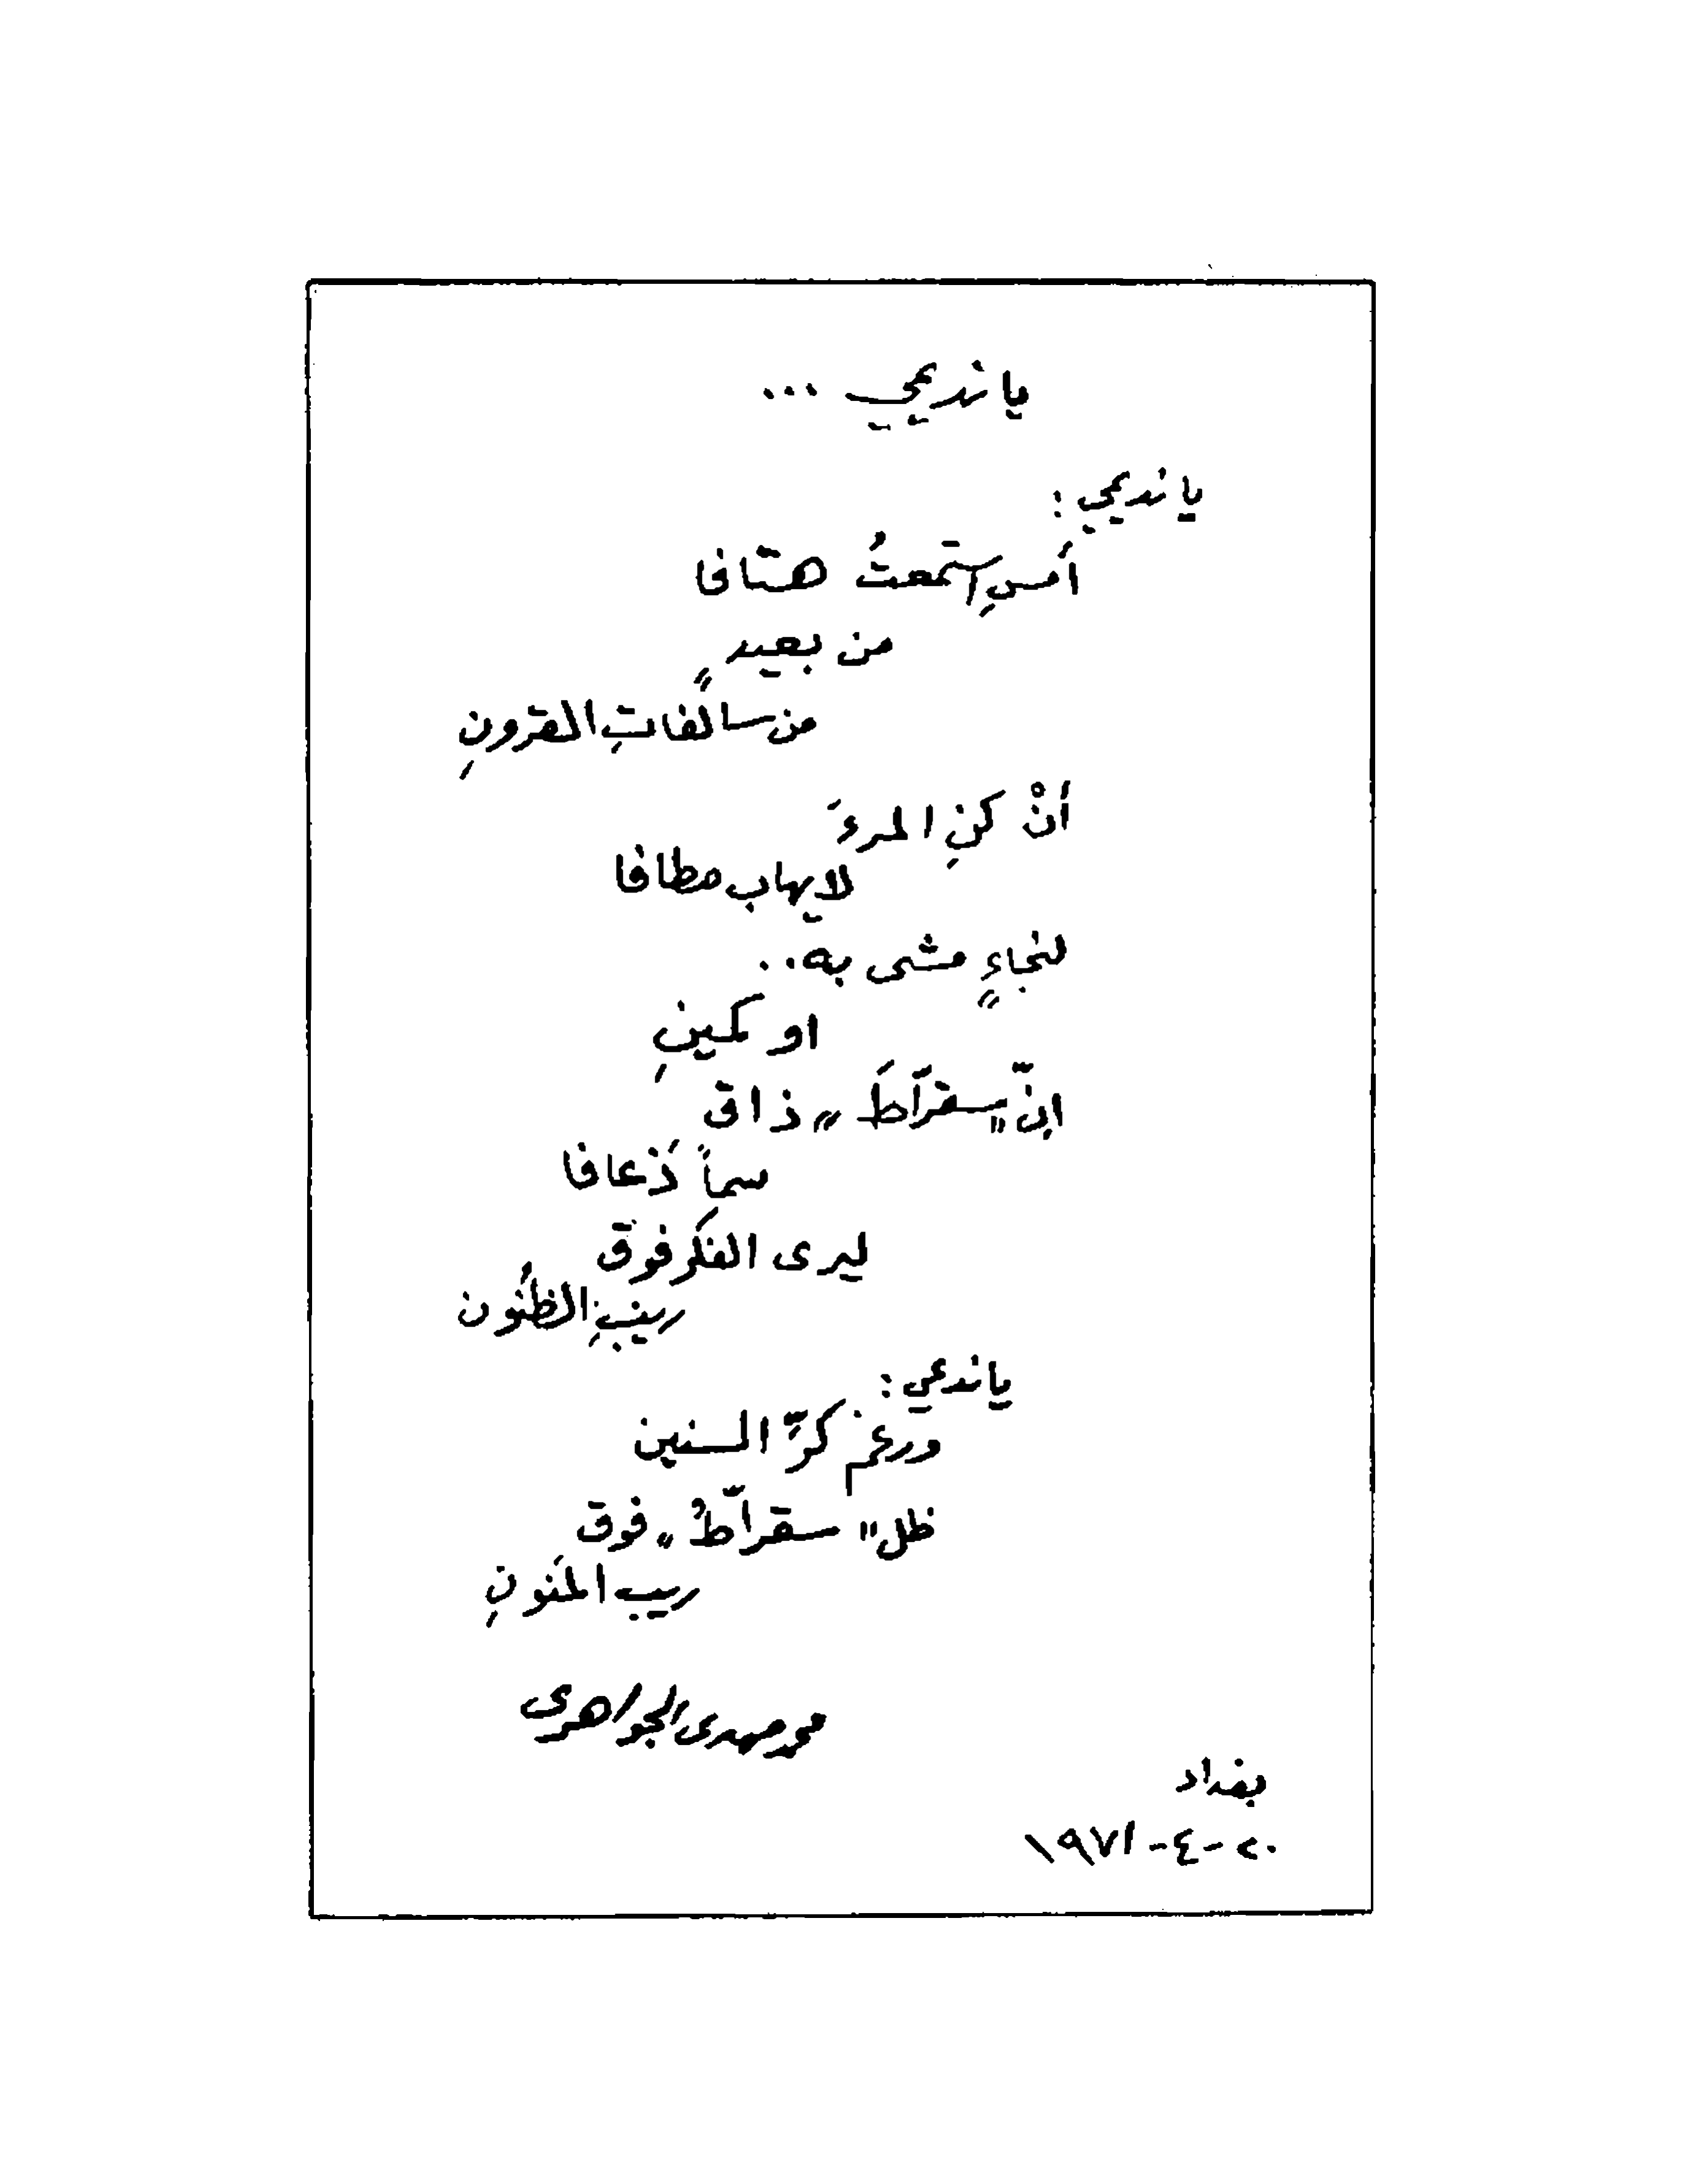 يا نديمي ...
يا نديمي :
أمسِ استمعتُ هتافا
من بعيدٍ
من سالفاتِ القرونِ
أنْ كنِ المرءَ
لا يهاب مطافا
لنجاءٍ مشى به..
او كمينِ
انّ "سقراطَ" ذاق
سماً ذعافا
ليرى الفكر فوق
ريبِ الظنُون
يا نديمي :
ورغم كرّ السنين
ظل "سقراطُ" فوق
ريب المنونِ
محمد مهدي الجواهري
بغداد
٢٠-٤-١٩٧١